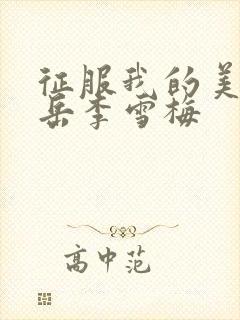 征服我的美
岳李雪梅
高中范